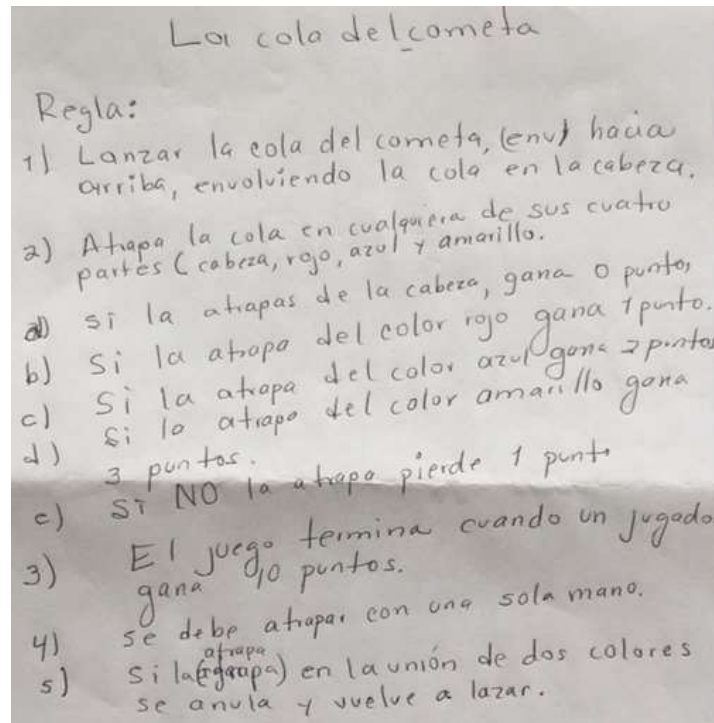 La cola del cometa
Regla:
1) Lanzar la cola del cometa, (env) hacia
arriba, envolviendo la cola en la cabeza.
2) Atrapa la cola en cualquiera de sus cuatro
partes (cabeza, rojo, azul y amarillo.
a) si la atrapas de la cabeza, gana 0 punto,
b) Si la atrapa del color rojo gana 1 punto.
c) Si la atrapa del color azul gana 2 puntos
d) Si la atrapa del color amarillo gana
3 puntos.
e) Si NO la atrapa pierde 1 punto
3) El juego termina cuando un jugado
gana 10 puntos.
4) se debe atrapar con una sola mano.
atrapa
5) Si la () en la unión de dos colores
se anula y vuelve a lazar.